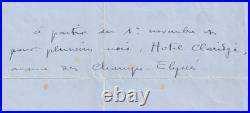 à partir du 1er novembre et
pour plusieurs mois, Hotel Claridge,
avenue des Champs-Elysées